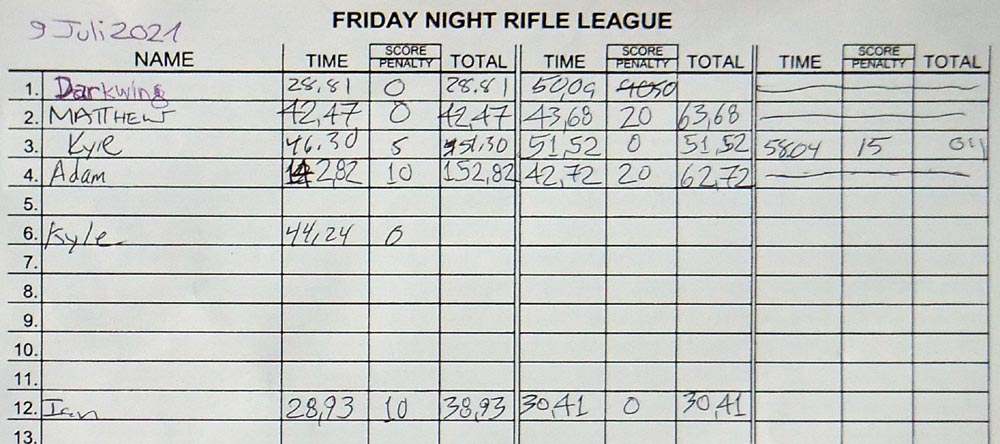 9 Juli 2021
FRIDAY NIGHT RIFLE LEAGUE
NAME TIME SCORE PENALTY TOTAL TIME SCORE PENALTY TOTAL TIME SCORE PENALTY TOTAL
1. Darkwing 28,81 0 28,81 50,09
2. MATTHEW 42,47 0 42,47 43,68 20 63,68
3. Kyle 46,30 5 51,30 51,52 0 51,52 58,04 15
4. Adam 2,82 10 152,82 42,72 20 62,72
5.
6. Kyle 44,24 0
7.
8.
9.
10.
11.
12. Ian 28,93 10 38,93 30,41 0 30,41
13.